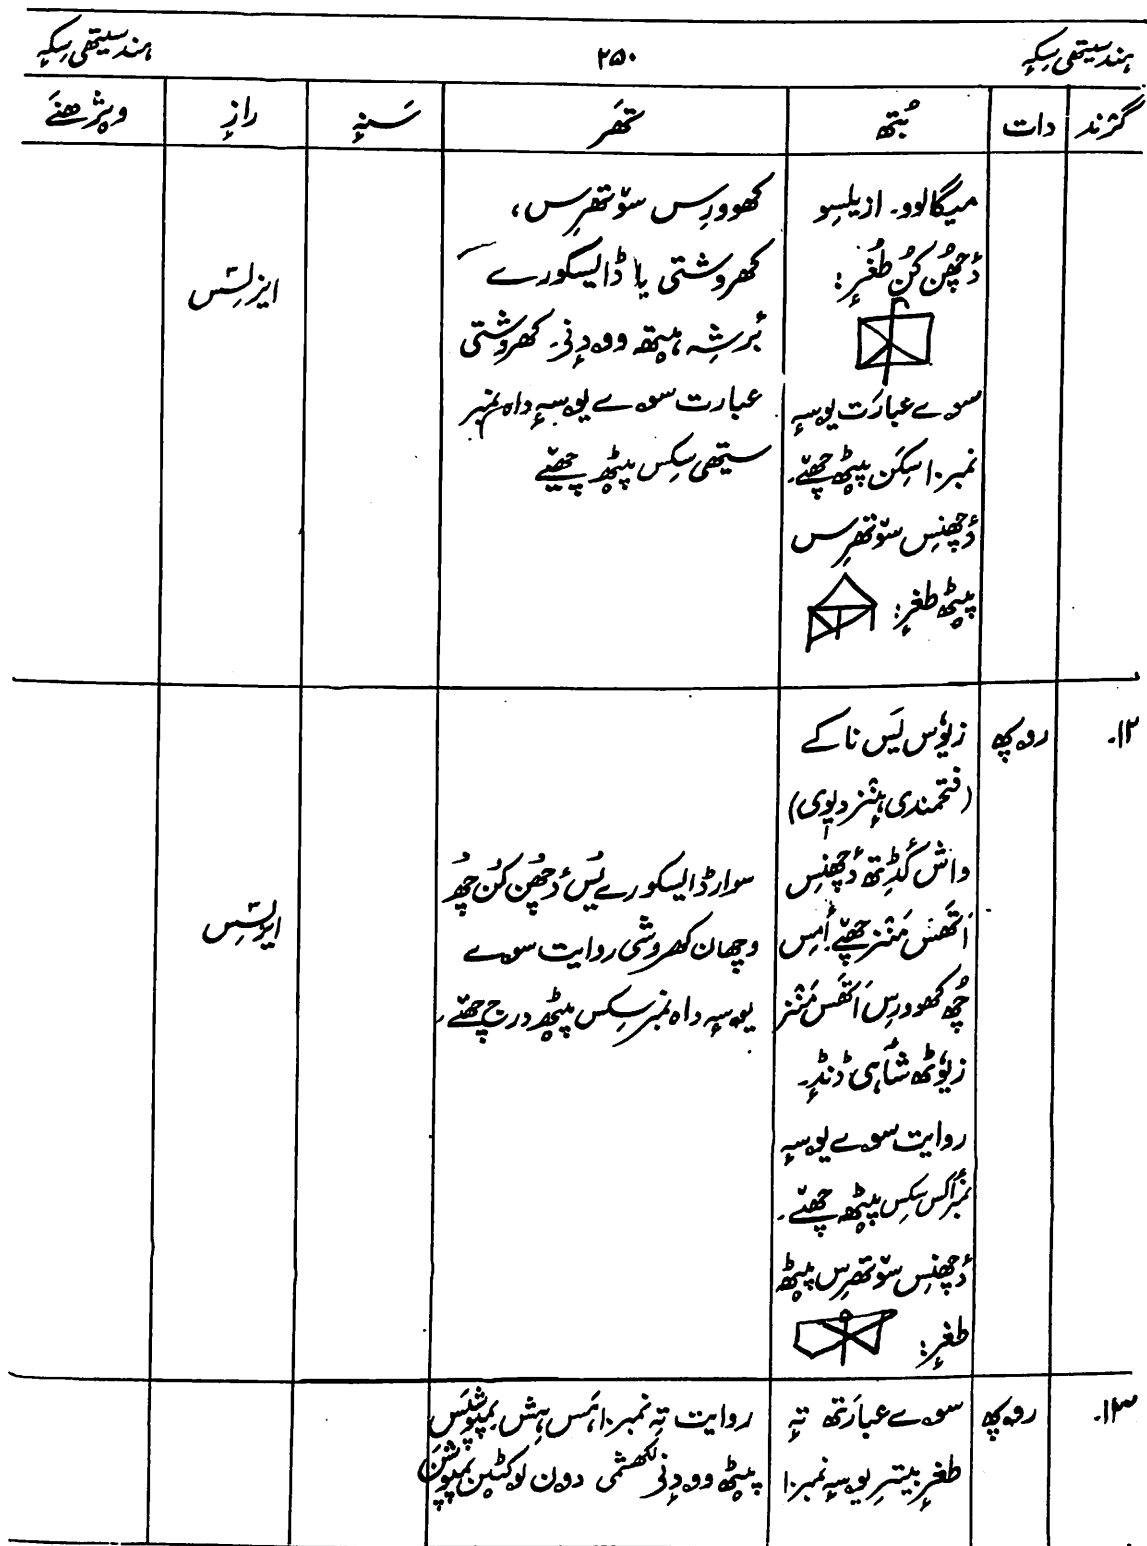 ہندسیتھی سِکہٕ ۲۵۰ ہندسیتھی سِکہٕ
گژند دات بُتھ تھَر سَنہٕ رازٕ ویژھنَے
میگالوو۔ ازیلسِو
دٔچھُن کُن طُغرٕ:
سۄے عبارَت یۄسہٕ
نمبر ۱۰ سِکَن پیٹھ چھےٚ۔
دٔچھنِس سۆتھرِس
پیٹھ طغرٕ:
کھووٕرِس سۆتھرِس،
کھروشتی یا ڈالیسکورے
بُرشہِ ہیتھ وۄدٕنی۔ کھروشتی
عبارت سۄے یۄسہٕ داہ نمبر
ستیھی سِکس پیٹھ چھےٚ
ایزلِسَس
۱۲۔ رۄپھ
زیوٗس یَس ناکے
(فتحمندی ہٕنٛز دیوی)
واش کٔڈتھ دٔچھنِس
اَتھَس مَنٛز چھےٚ أمِس
چھُ کھووٕرِس اَتھَس مَنٛز
زیوٗٹھ شٲہی ڈنڈٕ۔
روایت سۄے یۄسہٕ
نمبر اکِس سِکس پیٹھ چھےٚ۔
دٔچھنِس سۆتھرِس پیٹھ
طغرٕ:
سوار ڈالیسکورے یُس دٔچھُن کُن چھُ
وچھان کھروشی روایت سۄے
یۄسہٕ داہ نمبر سِکس پیٹھ درج چھےٚ۔
ایزلِسَس
۱۳۔ رۄپھ
سۄے عبارَتھ تہٕ
طغرٕ بیترِ یۄسہٕ نمبر ۱۰
روایت تہٕ نمبر ۱۰ ہَس ہِش پمپوشَس
پیٹھ وۄدٕنی لکھشمی دون لوکٹٮ۪ن پمپوشَن